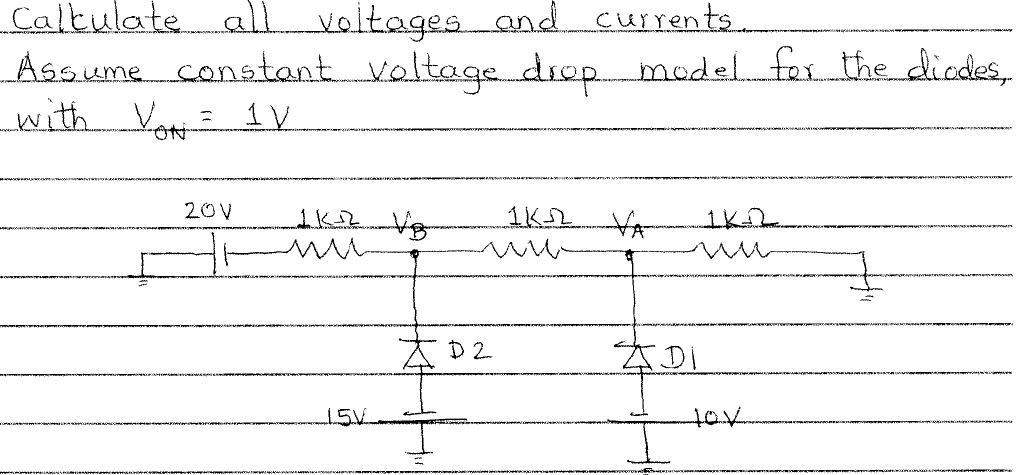 Calculate all voltages and currents.
Assume constant voltage drop model for the diodes,
with VON = 1V
20V 1KΩ VB 1KΩ VA 1KΩ
D2 D1
15V 10V